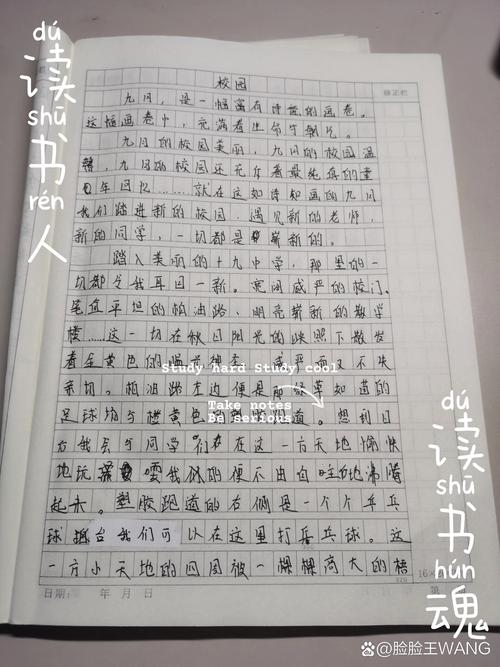 dú
读
shū
书
rén
人
校园
错正栏
九月，是一幅富有诗意的画卷。
这幅画卷中，充满着生命与朝气。
九月的校园美丽，九月的校园温
馨，九月的校园还充斥着最纯真的童
年回忆……就在这如诗如画的九月
我们踏进新的校园，遇见新的老师，
新的同学，一切都是崭新的。
踏入美丽的十九中学，那里的一
切都令我耳目一新。宽阔威严的校门、
笔直平坦的柏油路、明亮崭新的教学
楼……这一切在秋日阳光的映照下散发
着金黄色的 威严而又不失
亲切。柏油路左边便是那绿草如道的
足球场与橙黄色 跑道。想到日
后我会与同学们在这一方天地愉快
地玩 我的便不由自主地沸腾
起来。塑胶跑道的右侧是一个个乒乓
球 台我们可以在这里打乒乓球。这
一方小天地的四周被一棵棵高大的梧
Study hard Study cool
Take notes
Be serious
dú
读
shū
书
hún
魂
16×
320
日期： 年 月 日
第
Bai百家号@脸脸王WANG